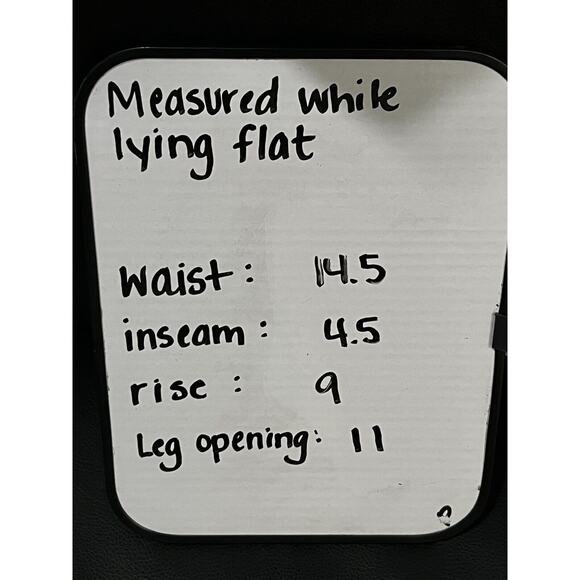 Measured while
lying flat
waist: 14.5
inseam: 4.5
rise: 9
Leg opening: 11